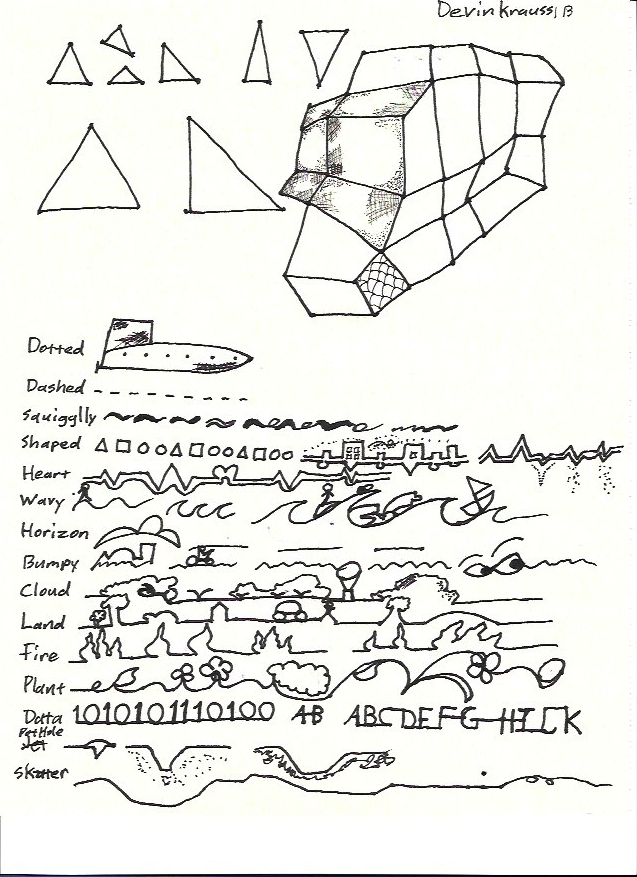 Devin Krauss 1B
Dotted
Dashed
Squigglly
Shaped
Heart
Wavy
Horizon
Bumpy
Cloud
Land
Fire
Plant
Data 1010101110100 AB ABCDEFG-HIJK
Pot Hole
Skater